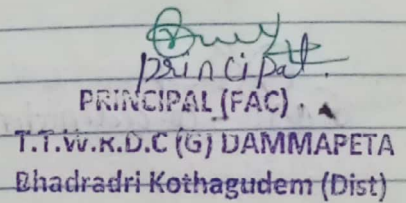 principal.
PRINCIPAL (FAC)
T.T.W.R.D.C (G) DAMMAPETA
Bhadradri Kothagudem (Dist)